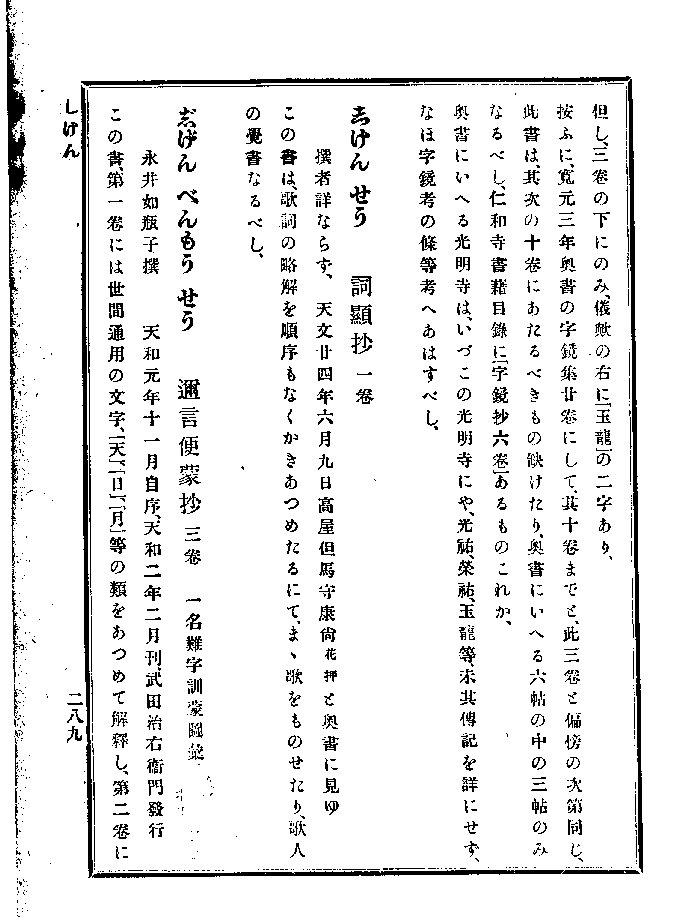 但し、三卷の下にのみ、儀歟の右に「玉龍」の二字あり、
按ふに、寬元三年奥書の字鏡集廿卷にして、其十卷までと、此三卷と偏傍の次第同じ、
此書は、其次の十卷にあたるべきもの缺けたり、奥書にいへる六帖の中の三帖のみ
なるべし、仁和寺書籍目錄に「字鏡抄六卷」あるものこれか、
奥書にいへる光明寺は、いづこの光明寺にや、光祐、榮祐、玉龍等、未其傳記を詳にせず、
なほ字鏡考の條等考へあはすべし、
志けん せう 詞顯抄 一卷
撰者詳ならず、 天文廿四年六月九日高屋但馬守康尙花押と奥書に見ゆ
この書は、歌詞の略解を順序もなくかきあつめたるにて、まゝ歌をものせたり、歌人
の覺書なるべし、
志げん べんもう せう 邇言便蒙抄 三卷 一名難字訓蒙圖彙
永井如瓶子撰 天和元年十一月自序、天和二年二月刊、武田治右衞門發行
この書、第一卷には世間通用の文字、「天」「日」「月」等の類をあつめて解釋し、第二卷に
しけん
二八九